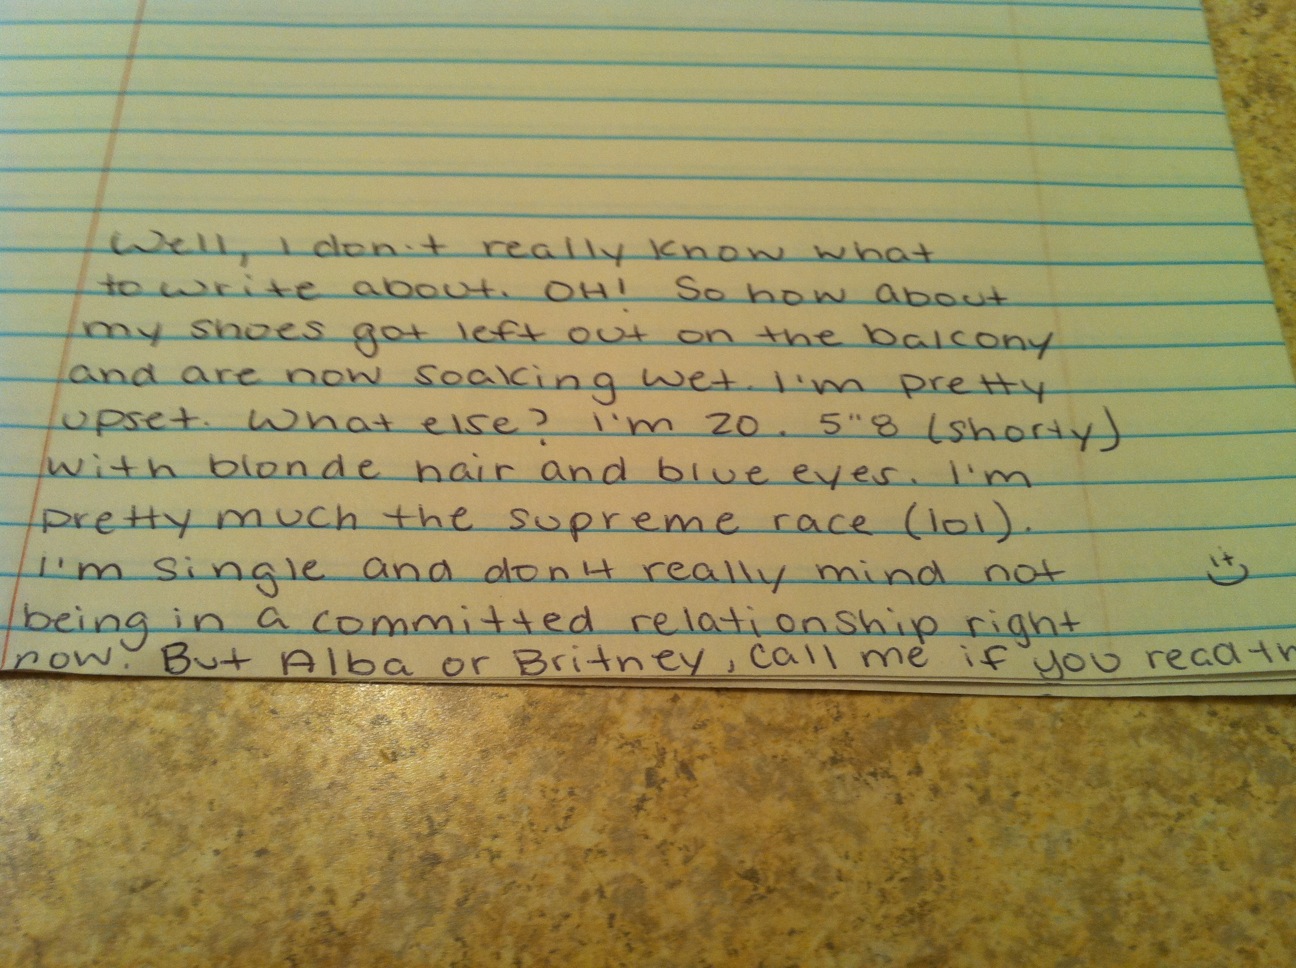 Well, I don't really know what
to write about. OH! So how about
my shoes got left out on the balcony
and are now soaking wet. I'm pretty
upset. What else? I'm 20. 5"8 (shorty)
with blonde hair and blue eyes. I'm
pretty much the supreme race (lol).
I'm single and don't really mind not
being in a committed relationship right
now. But Alba or Britney, call me if you read